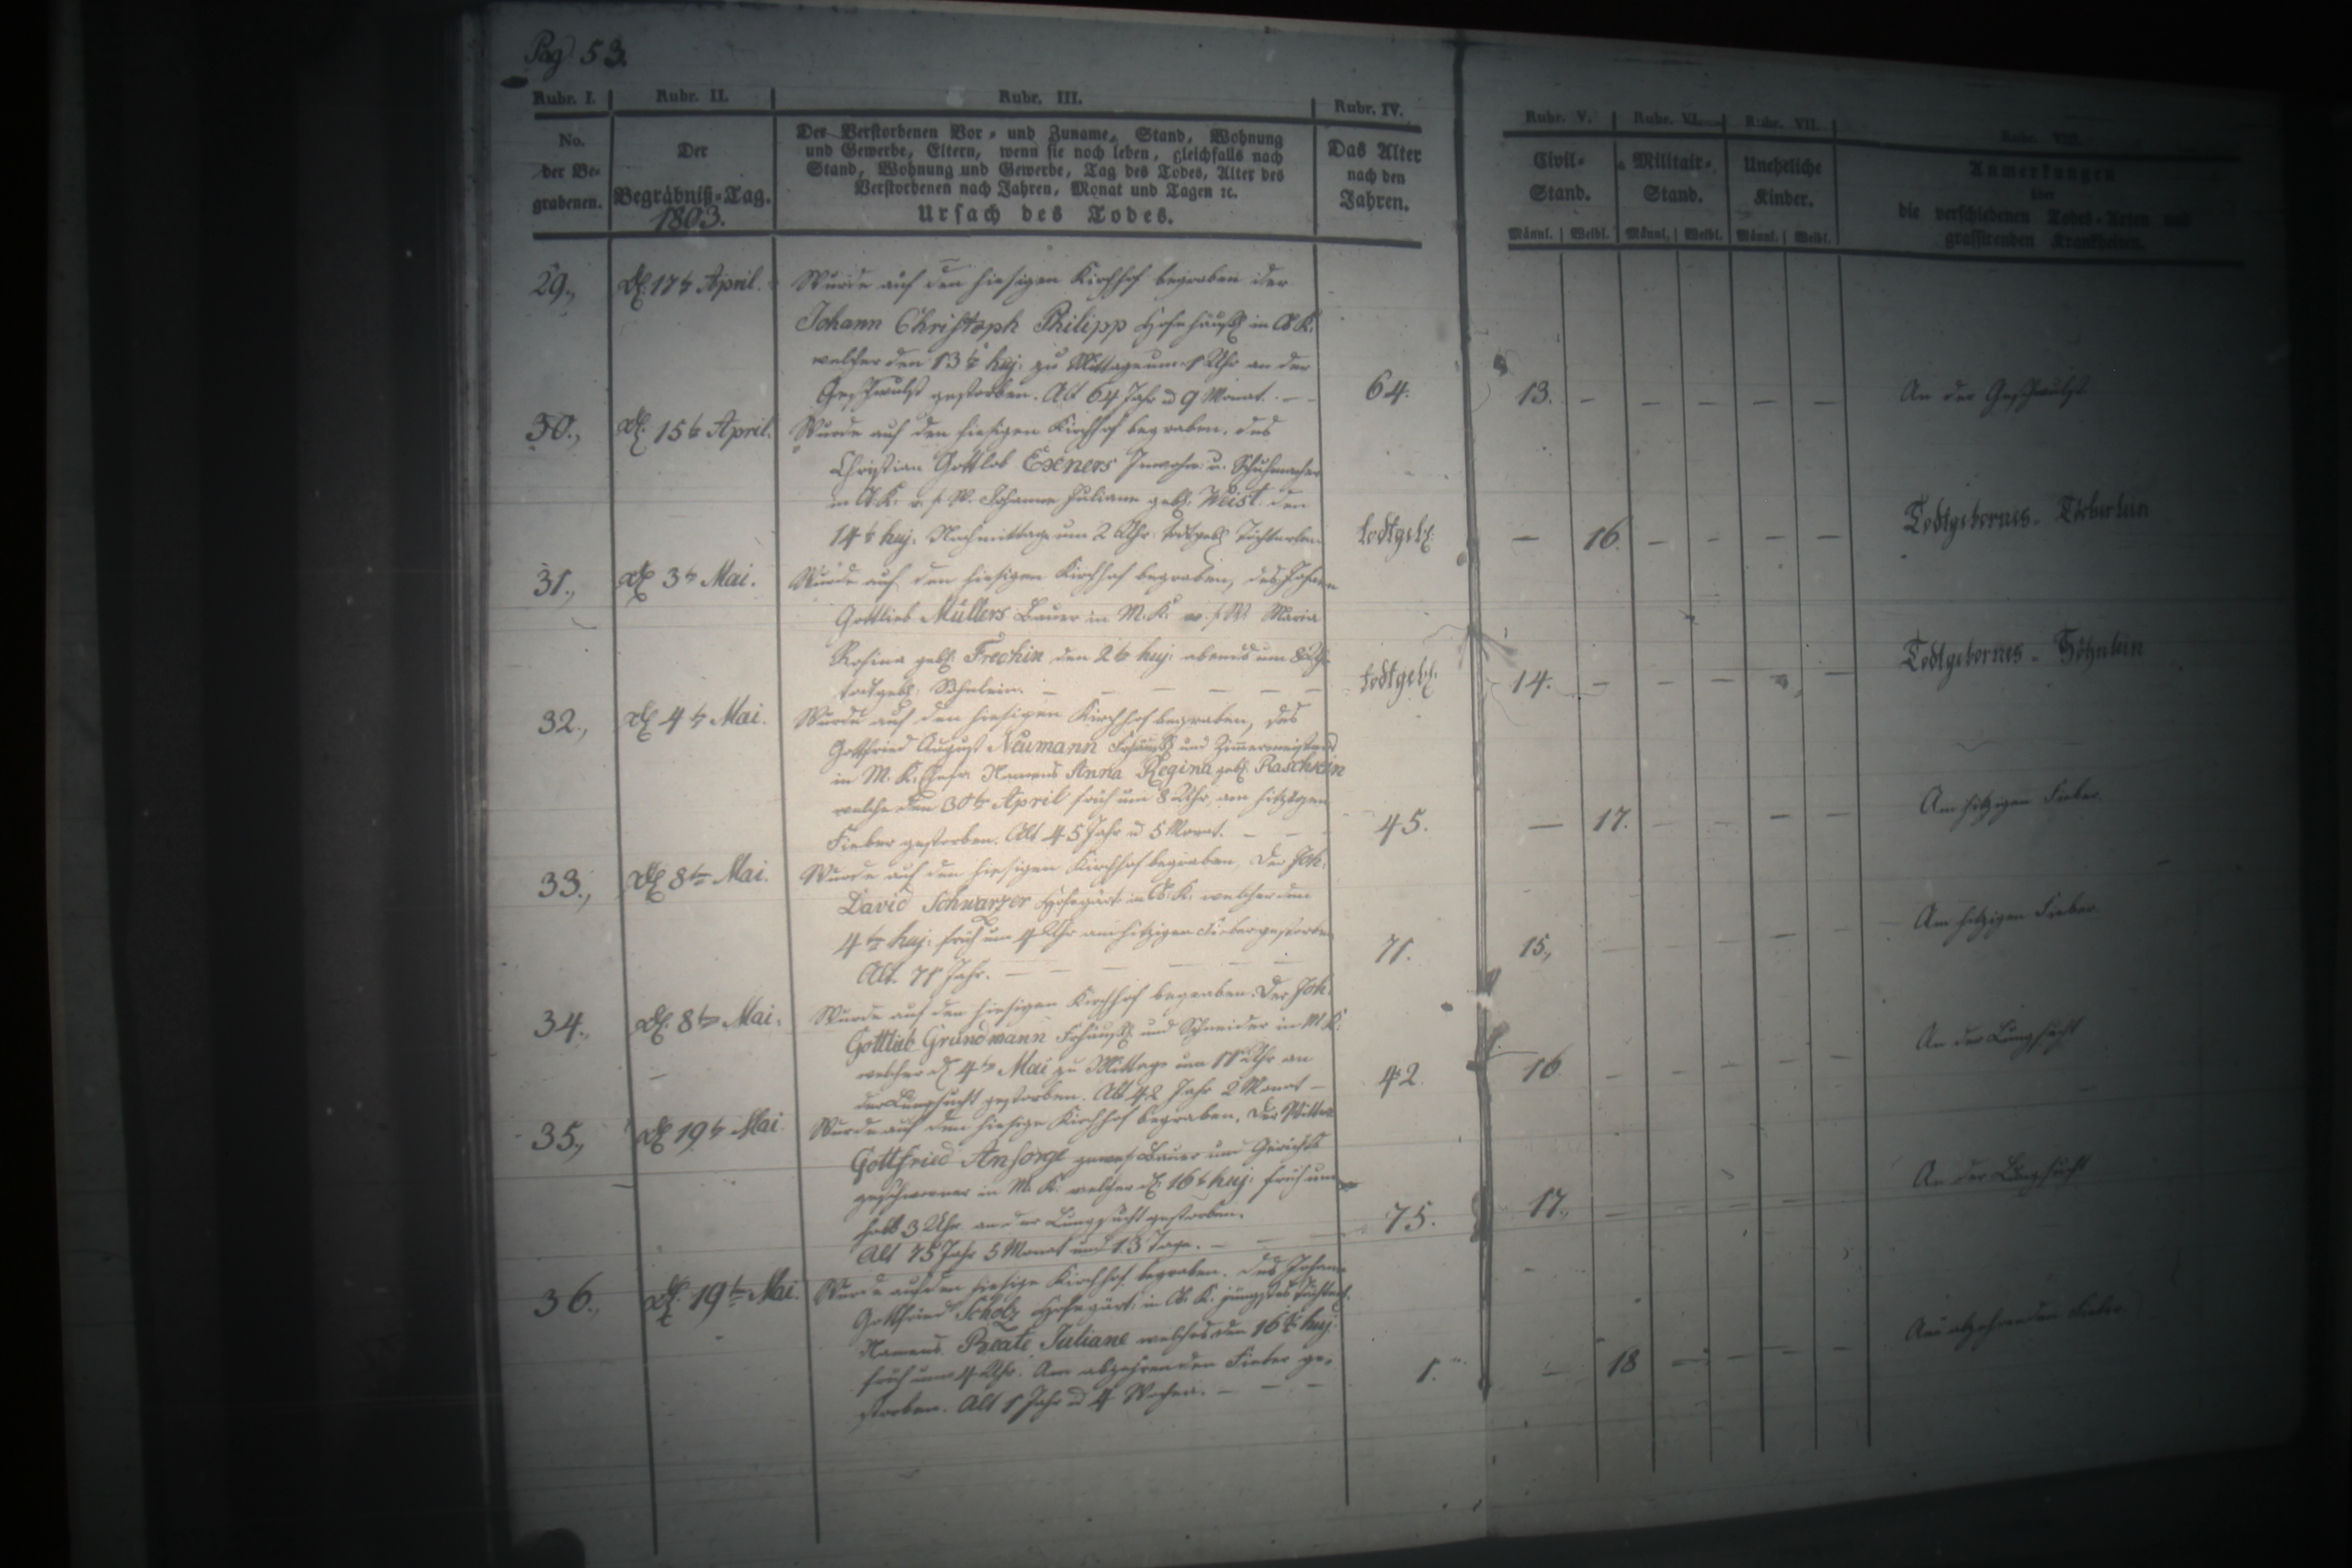 Pag 53.
Rubr. I. Rubr. II. Rubr. III. Rubr. IV. Rubr. V. Rubr. VI. Rubr. VII. Rubr. VIII.
No. der Be- grabenen.
Der Begräbniß-Tag. 1803.
Der Verstorbenen Vor- und Zuname, Stand, Wohnung
und Gewerbe, Eltern, wenn sie noch leben, gleichfalls nach
Stand, Wohnung und Gewerbe, Tag des Todes, Alter des
Verstorbenen nach Jahren, Monat und Tagen ꝛc.
Ursach des Todes.
Das Alter nach den Jahren.
Civil-Stand.
Militair-Stand.
Unehliche Kinder.
Männl. Weibl. Männl. Weibl. Männl. Weibl.
Anmerkungen
über
die verschiedenen Todes-Arten und
grassirenden Krankheiten.
29., 17t April. Wurde auf den hiesigen Kirchhof begraben der
Johann Christoph Philipp Hofehäusl in
welcher den 13t huj: zu Mittage um 1 Uhr an der
Geschwulst gestorben. Alt 64 Jahr u 9 Monat. — 64. 13. — — — — — An der Geschwulst.
30., 15t April. Wurde auf den hiesigen Kirchhof begraben, des
Christian Gottlob Exners Inwohn: u. Schuhmacher
in v. s. W. Johanne Juliane geb: Weist den
14t huj: Nachmittage um 2 Uhr todtgeb Töchterlein todtgeb: — 16. — — — — Todtgebornes Töchterlein
31., 3t Mai. Wurde auf den hiesigen Kirchhof begraben, des Johann
Gottlieb Müllers Bauer in M. K. v. s. W. Maria
Rosina geb: den 2t huj: abends um 8 Uhr
todtgeb: Söhnlein. — — — — — — todtgeb: 14. — — — — — Todtgebornes Söhnlein
32., 4t Mai. Wurde auf den hiesigen Kirchhof begraben, des
Gottfried August Neumann Frhäusl und Zimmermeisters
in M. K. Namens Anna Regina geb: Raschkin
welche den 30t April früh um 8 Uhr, am hitzigen
Fieber gestorben. Alt 45 Jahr u 5 Monat. — — 45. — 17. — — — — Am hitzigen Fieber.
33., 8t Mai. Wurde auf den hiesigen Kirchhof begraben, Der Joh:
David Schwarzer Hofegärt: in welcher den
4t huj: früh um 4 Uhr am hitzigen Fieber gestorben
Alt. 71 Jahr. — — — — — — 71. 15., — — — — — Am hitzigen Fieber
34., 8t Mai. Wurde auf den hiesigen Kirchhof begraben. Der Joh:
Gottlieb Grundmann Frhäusl und Schneider in M K.
welcher d 4t Mai zu Mittage um 11 Uhr an
der Lungsucht gestorben. Alt 42 Jahr 2 Monat — 42. 16 — — — — — An der Lungsucht
35., 19t Mai Wurde auf den hiesige Kirchhof begraben, Der Wittwer
Gottfried Ansorge gewes Bauer und Gerichts
geschworner in M. K. welcher d 16t huj: früh um
halb 3 Uhr an der Lungsucht gestorben.
Alt 75 Jahr 5 Monat und 13 Tage. — — — 75. 17., — — — — — An der Lungsucht
36., 19t Mai. Wurde auf den hiesige Kirchhof begraben. des Johann
Gottfried Scholz Hofegärt: in jüngstes Töchterl.
Namens Beate Juliane welches den 16t huj
früh um 4 Uhr. Am abzehrenden Fieber ge-
storben. Alt 1 Jahr u 4 Wochen. — — — 1. — 18 — — — — Am abzehrenden Fieber